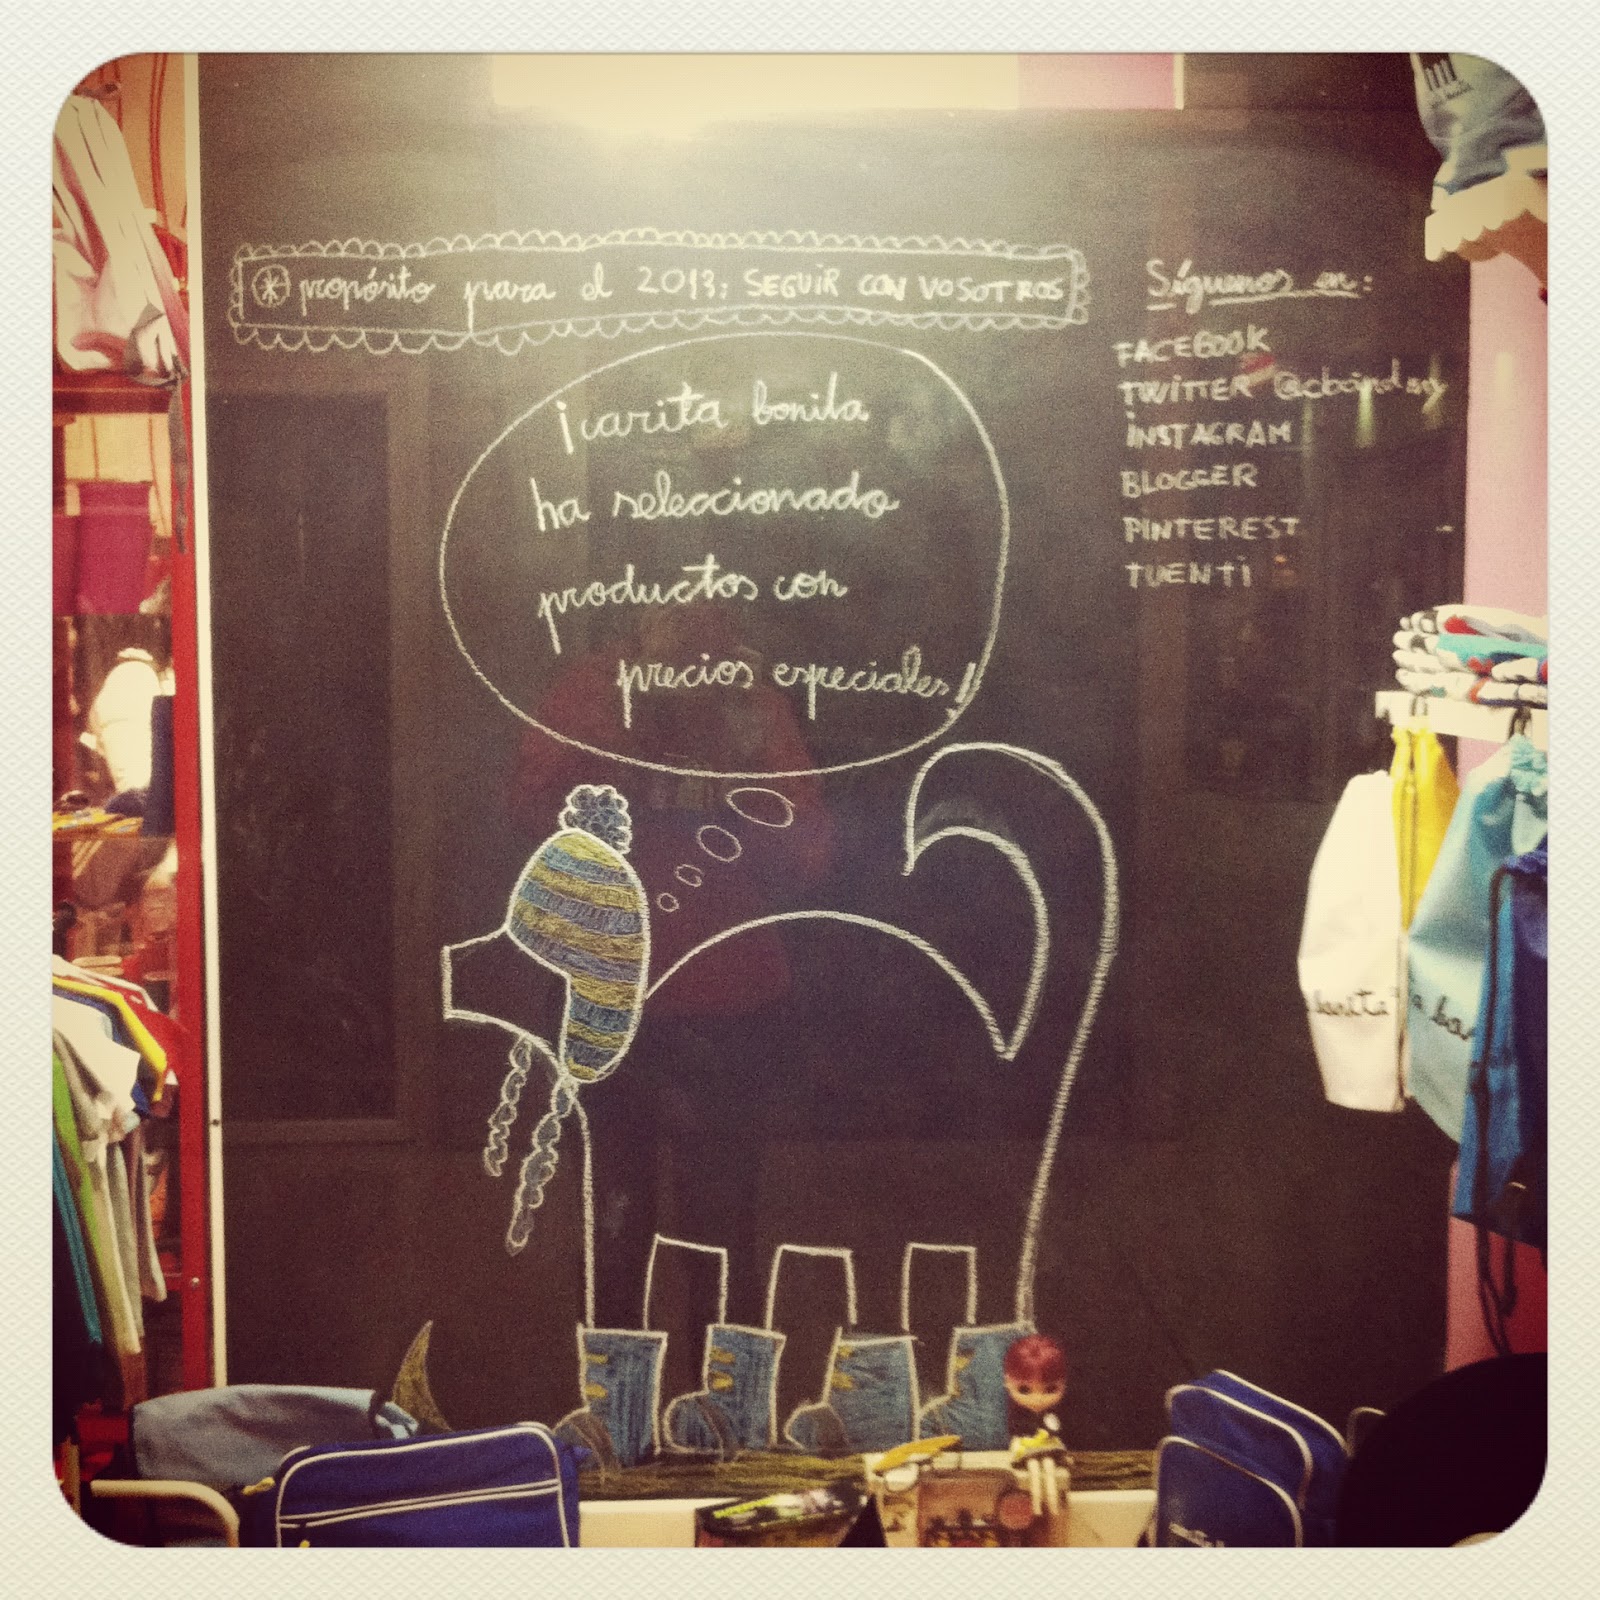 propósito para el 2013: SEGUIR CON VOSOTROS
¡carita bonita
ha seleccionado
productos con
precios especiales!!
Síguenos en:
FACEBOOK
TWITTER
INSTAGRAM
BLOGGER
PINTEREST
TUENTI